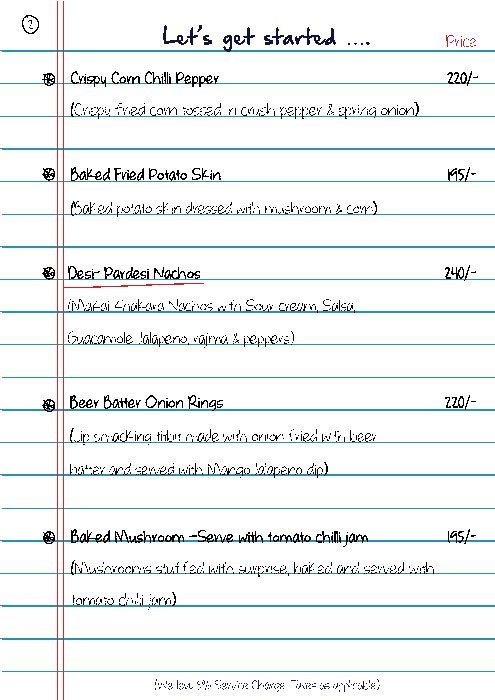 2
Let's get started ....
Price
Crispy Corn Chilli Pepper 220/-
(Crispy fried corn tossed in crush pepper & spring onion)
Baked Fried Potato Skin 195/-
(Baked potato skin dressed with mushroom & corn)
Desi- Pardesi Nachos 240/-
(Makai Khakara Nachos with Sour cream, Salsa,
Guacamole Jalapeno, rajma & peppers)
Beer Batter Onion Rings 220/-
(Lip smacking titbit made with onion fried with beer
batter and served with Mango Jalapeno dip)
Baked Mushroom -Serve with tomato chilli jam 195/-
(Mushrooms stuffed with surprise, baked and served with
tomato chilli jam)
(We levy Service Charge. Taxes as applicable)